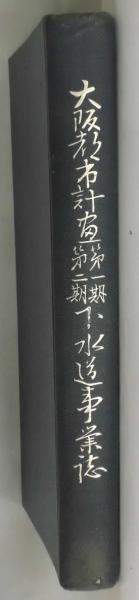 大阪都市計画第一期第二期下水道事業誌